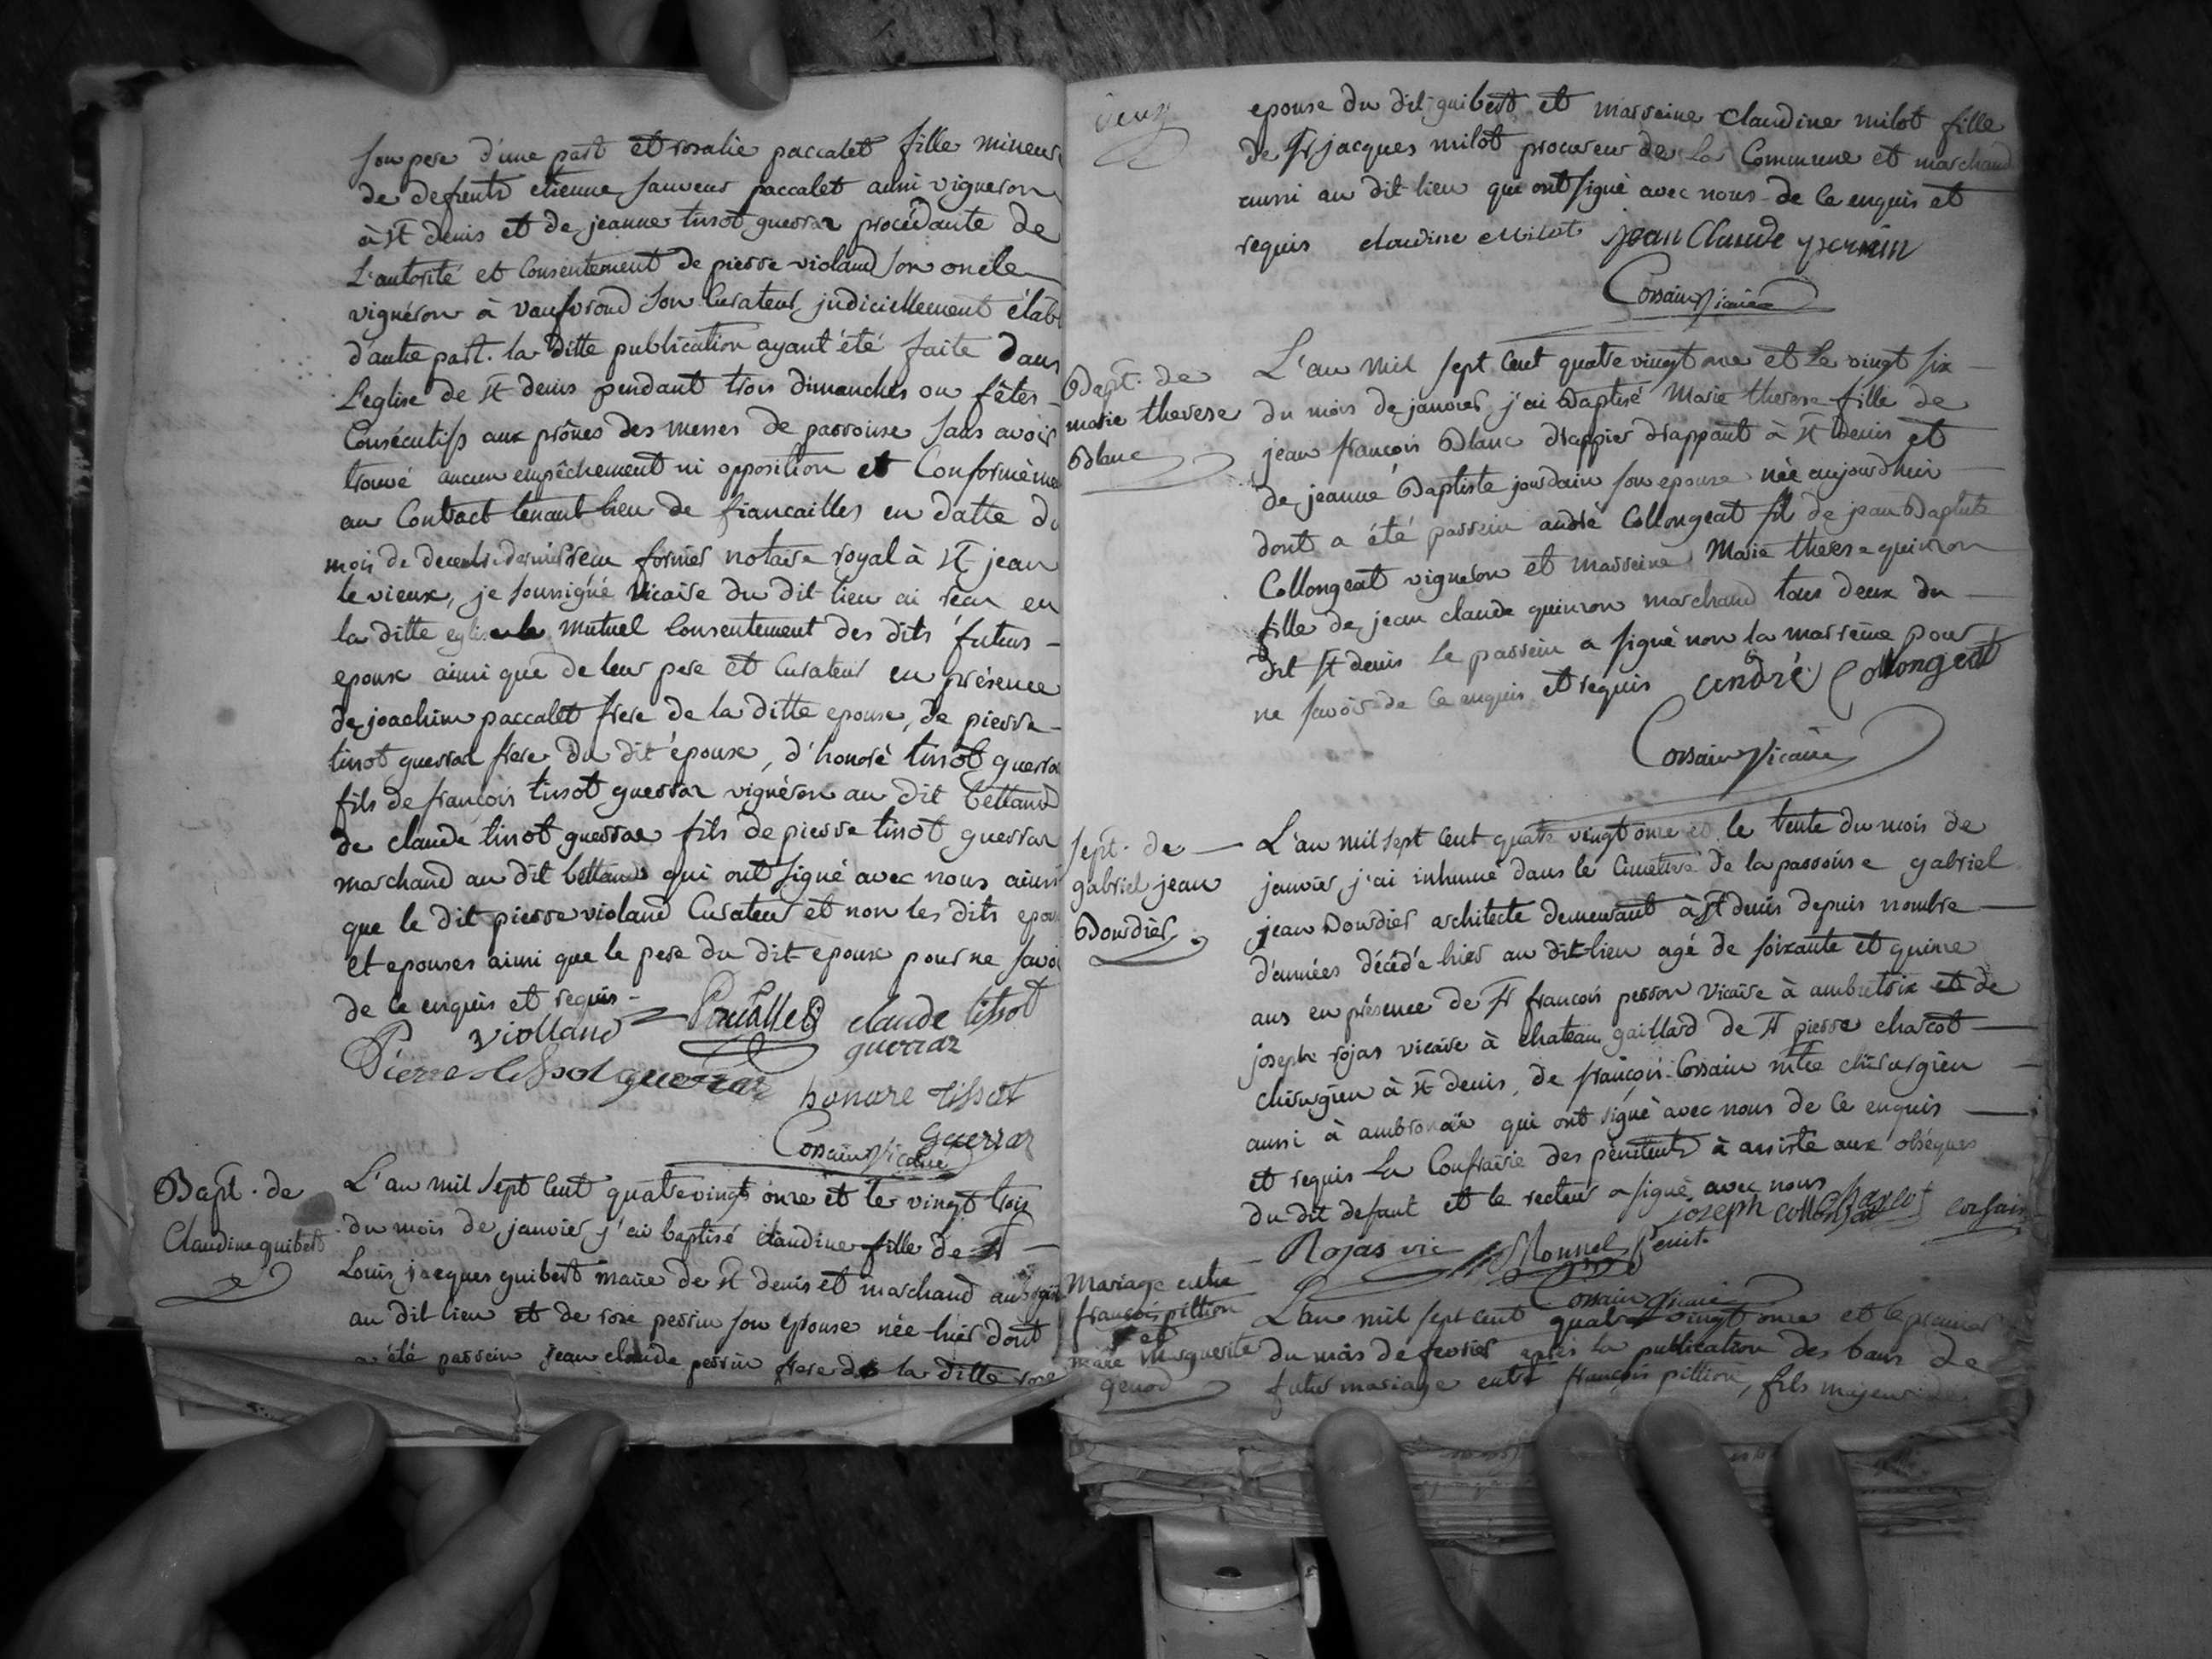 son pere d'une part et rosalie paccalet fille mineure
de defunts etienne sauveur paccalet aussi vigneron
à St denis et de jeanne tissot guerraz procédante de
L'autorité et consentement de pierre violand son oncle
vignéron à vaufrond son curateur judiciellement étab
d'autre part. la ditte publication ayant été faite dans
L'eglise de St denis pendant trois dimanches ou fêtes
Consécutifs aux prônes des messes de parroisse sans avoir
trouvé aucun empêchement ni opposition et Conformème
au Contract tenant lieu de fiancailles en datte du
mois de decembre dernier recu former notaire royal à St jean
le vieux, je soussigné vicaire du dit lieu ai recu en
la ditte eglise le mutuel consentement des dits futurs
epoux ainsi que de leur pere et curateur en présence
de joachim paccalet frere de la ditte epouse, de pierre
tissot guerraz frere du dit époux, d'honoré tissot guerraz
fils de francois tissot guerraz vignéron au dit bettand
de claude tissot guerraz fils de pierre tissot guerraz
marchand au dit bettand qui ont signé avec nous ainsi
que le dit pierre violand curateur et non les dits epoux
et epouses ainsi que le pere du dit epoux pour ne savoi
de ce enquis et requis
violland Pacallet claude tissot
guerraz
Pierre tissot guerraz
honore tissot
guerraz
Corsain vicaire
Bapt. de
Claudine guibert
L'an mil sept cent quatre vingt onze et le vingt trois
du mois de janvier j'ai baptisé claudine fille de Sr
Louis jacques guibert maire de St denis et marchand
au dit lieu et de rose perrin son epouse née hier dont
a été parrein jean claude perrin frere de la ditte rose
epouse du dit guibert et marreine claudine milot fille
de Sr jacques milot procureur de la Commune et marchand
aussi au dit lieu qui ont signé avec nous de ce enquis et
requis claudine Milot jean Claude perrin
Corsain vicaire
Bapt. de
marie therese
Blanc
L'an mil sept cent quatre vingt onze et le vingt six
du mois de janvier j'ai Baptisé Marie therese fille de
jean françois Blanc drappier drappant à St denis et
de jeanne Baptiste jourdain son epouse née aujourdhui
dont a été parrein andré Collongeat fils de jean Baptiste
Collongeat vigneron et marreine Marie therese quinson
fille de jean claude quinson marchand tous deux du
dit St denis le parrein a signé non la marreine pour
ne savoir de ce enquis et requis andré Collongeat
Corsain vicaire
sept. de
gabriel jean
Bourdier
L'an mil sept cent quatre vingt onze et le trente du mois de
janvier j'ai inhumé dans le cimetiere de la parroisse gabriel
jean Bourdier architecte demeurant à St denis depuis nombre
d'années décédé hier au dit lieu agé de soixante et quinze
ans en présence de Sr francois perron vicaire à ambutrix et de
joseph rojas vicaire à chateau gaillard de Sr pierre charcot
chirurgien à St denis, de françois Corsain mtre chirurgien
aussi à ambronaï qui ont signé avec nous de ce enquis
et requis La Confrairie des pénitents à assisté aux obséques
du dit defunt et le recteur a signé avec nous
joseph collonjat charcot corsain
Rojas vic Monnet penit.
Corsain vicaire
Mariage entre
francois pittion
et
marie Marguerite
genod
L'an mil sept cent quatre vingt onze et le premier
du mois de fevrier après la publication des bans de
futur mariage entre françois pittion, fils majeur de